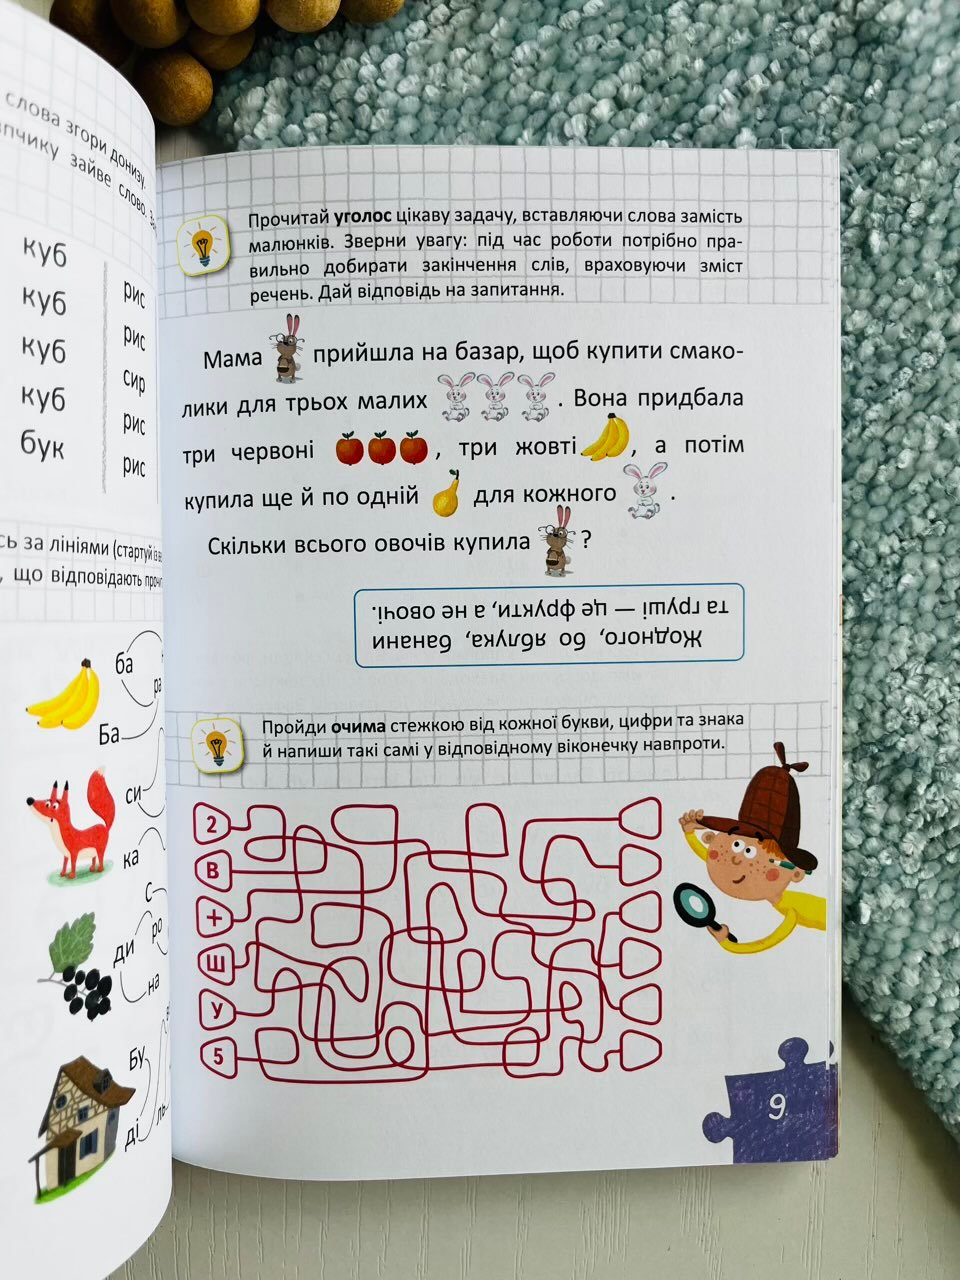 слова згори донизу.
зайве слово.
куб
куб
куб
куб
бук
рис
рис
сир
рис
рис
за лініями (стартуй
, що відповідають
ба
ра
Ба
си
ка
С
ди
ро
на
Бу
ді
ль
Прочитай уголос цікаву задачу, вставляючи слова замість
малюнків. Зверни увагу: під час роботи потрібно пра-
вильно добирати закінчення слів, враховуючи зміст
речень. Дай відповідь на запитання.
Мама прийшла на базар, щоб купити смако-
лики для трьох малих . Вона придбала
три червоні , три жовті , а потім
купила ще й по одній для кожного .
Скільки всього овочів купила ?
Жодного, бо яблука, банани
та груші — це фрукти, а не овочі.
Пройди очима стежкою від кожної букви, цифри та знака
й напиши такі самі у відповідному віконечку навпроти.
2
В
+
Ш
У
5
9